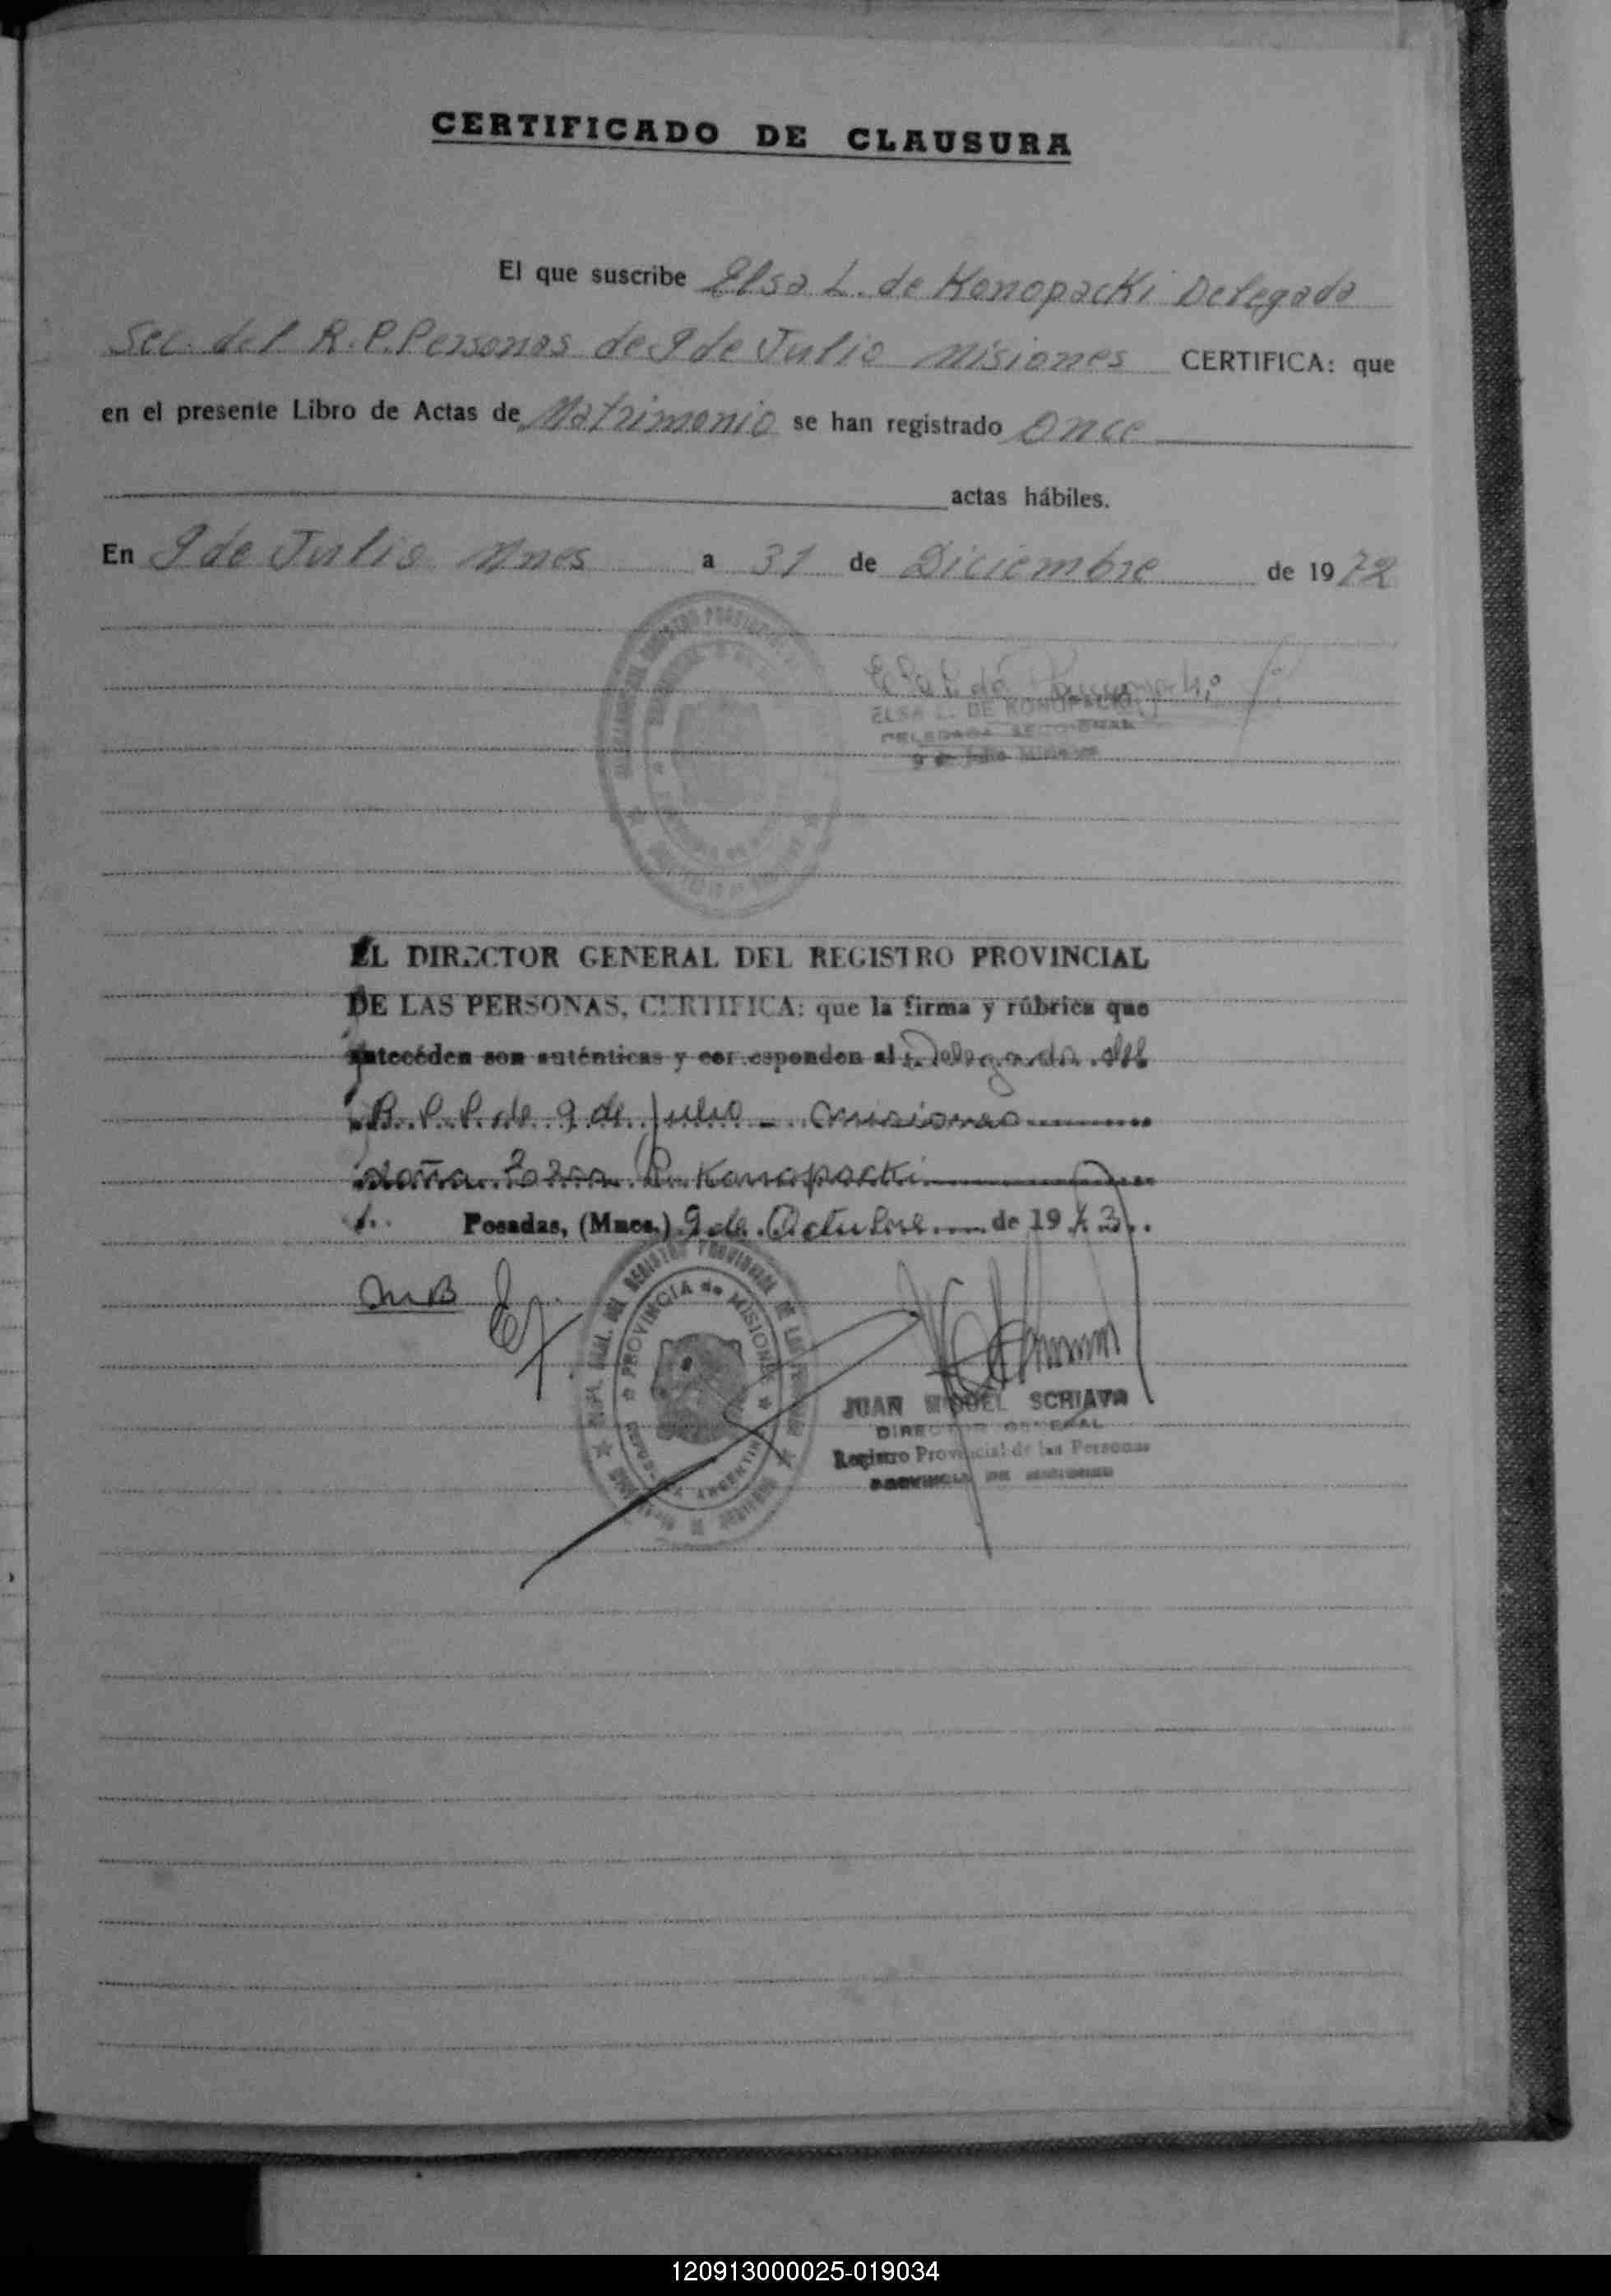 CERTIFICADO DE CLAUSURA
El que suscribe Elsa L. de Konopacki Delegada
Sec. del R.P.Personas de 9 de Julio Misiones CERTIFICA: que
en el presente Libro de Actas de Matrimonio se han registrado Once
actas hábiles.
En 9 de Julio Mnes a 31 de Diciembre de 1972
ELSA L. DE KONOPACKI
DELEGADA SECCIONAL
9 de Julio Misiones
EL DIRECTOR GENERAL DEL REGISTRO PROVINCIAL
DE LAS PERSONAS, CERTIFICA: que la firma y rúbrica que
antecéden son auténticas y corresponden al Delegada del
R.P.P. de 9 de Julio - Misiones
doña Konopacki
Posadas, (Mnes.) 9 de Octubre de 1973
MB
PROVINCIA de MISIONES
JUAN MIGUEL SCHIAVA
DIRECTOR GENERAL
Registro Provincial de las Personas
PROVINCIA DE MISIONES
120913000025-019034